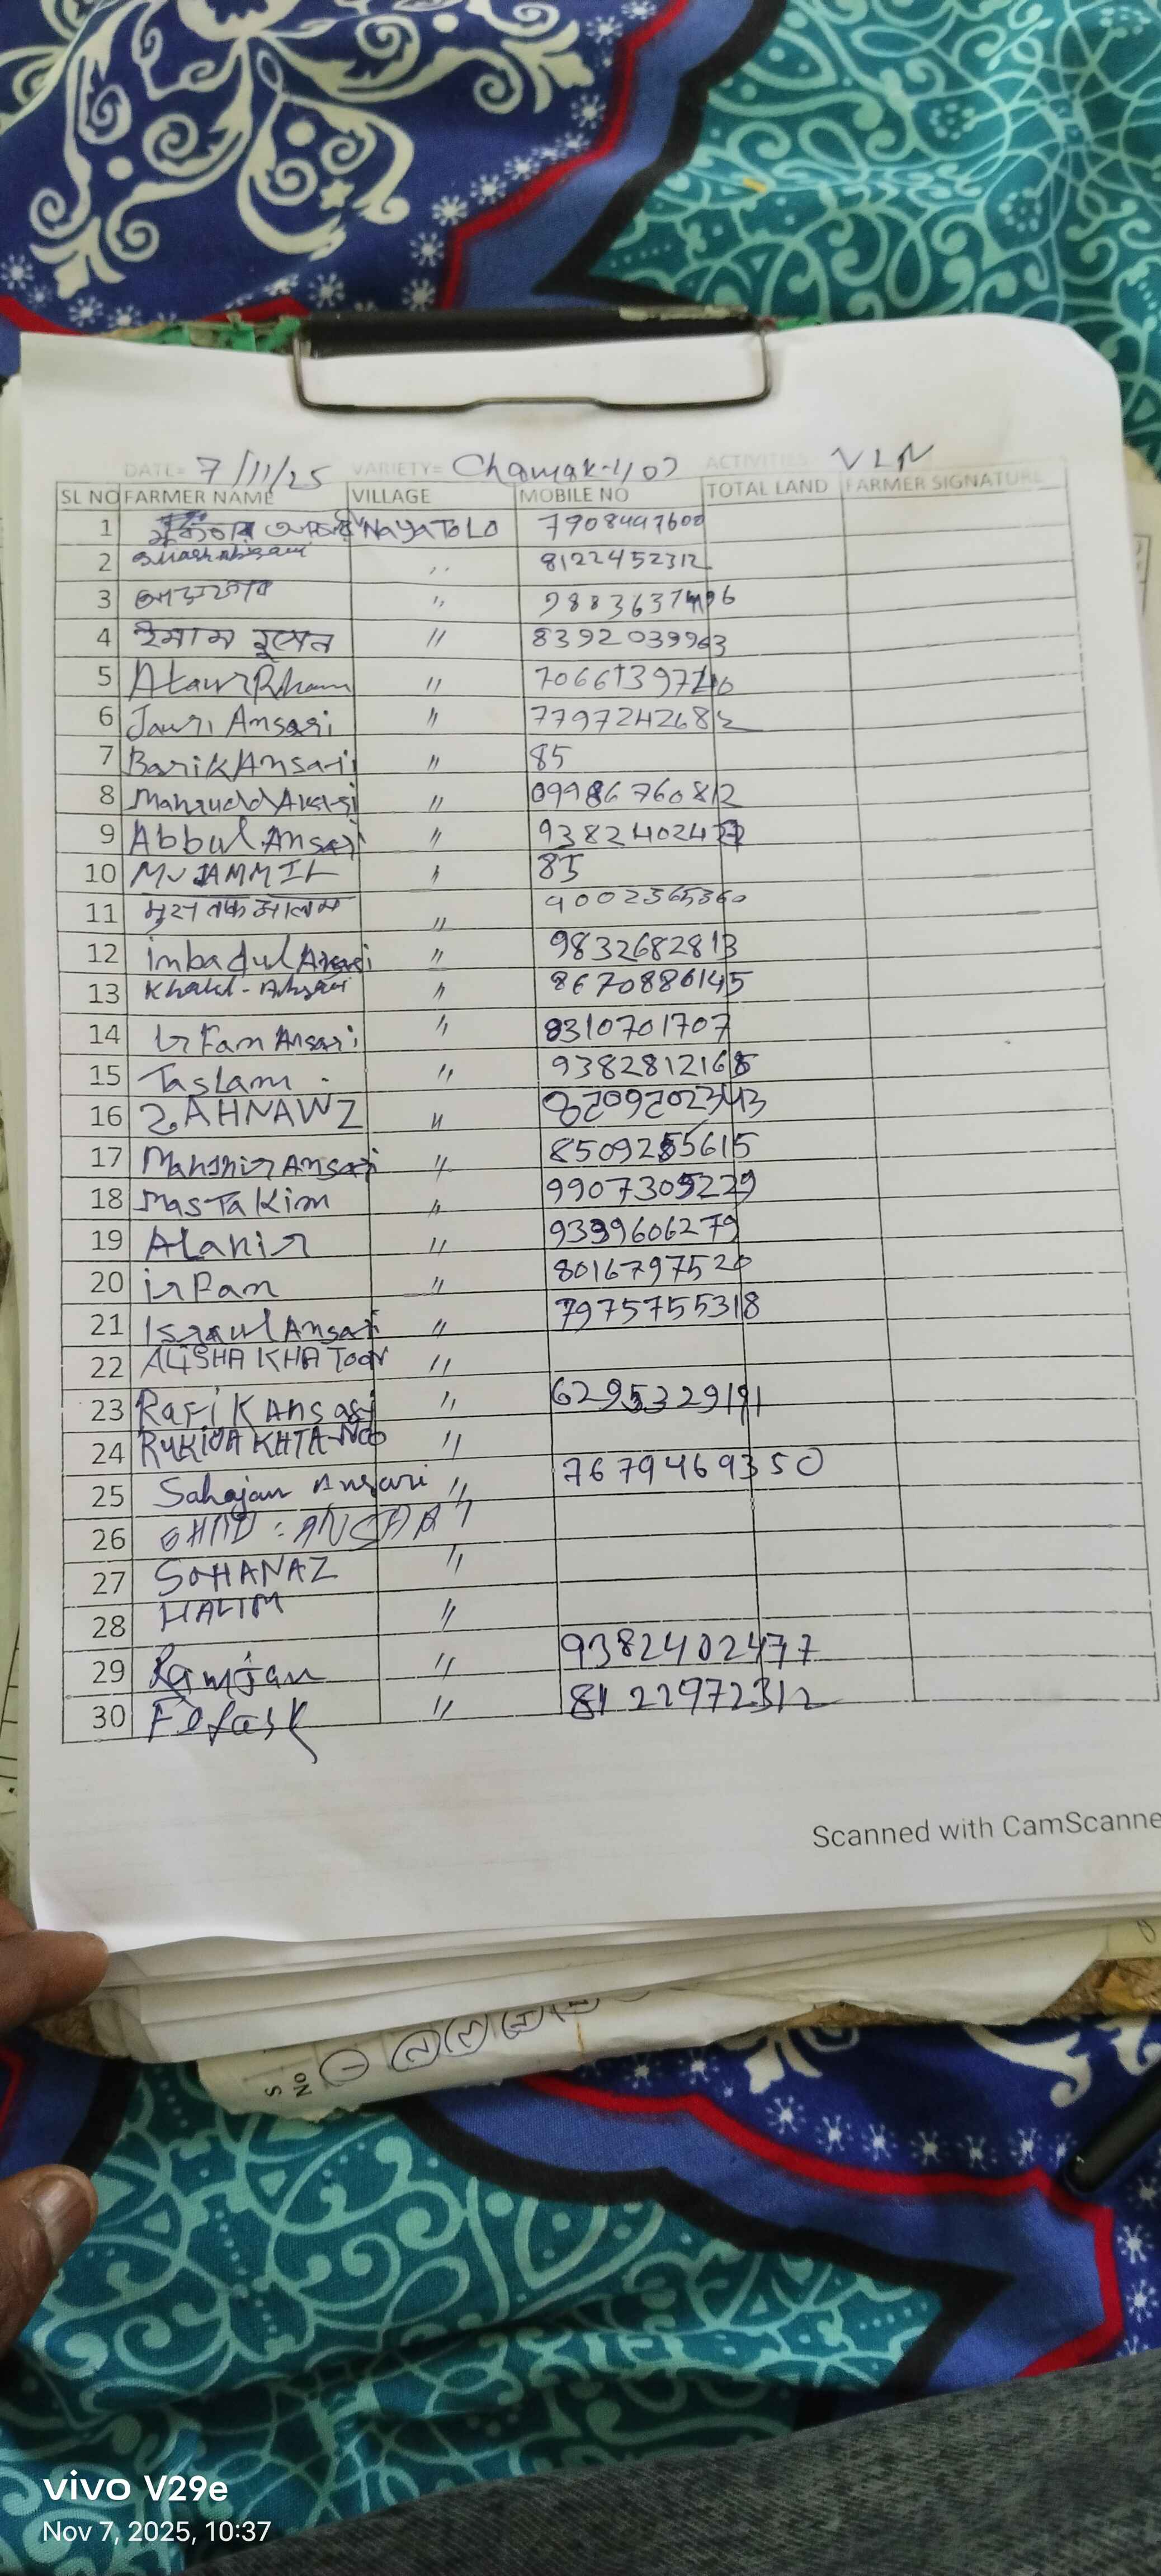 DATE= 7/11/25 VARIETY= Chamak-1107 ACTIVITIES VLN
SL NO FARMER NAME VILLAGE MOBILE NO TOTAL LAND FARMER SIGNATURE
1 NayaToLa 7908497600
2 8122452312
3 98836374
4 ইমাম হুসেন " 8392039963
5 AtaurRham " 70661397
6 Jauri Ansari " 7797242682
7 Barik Ansari " 85
8 " 09986760812
9 Abbul Ansari " 93824024
10 MUJAMMIL " 85
11 " 9002365360
12 imbadul Ansari " 9832682813
13 Khalil - Ansari " 8670886145
14 Irfan Ansari " 8310701707
15 Taslam " 9382812168
16 SAHNAWZ "
17 Ansari " 8509255615
18 MasTaKim " 9907309229
19 " 9399606279
20 irfan " 8016797520
21 Israul Ansari " 7975755318
22 ALISHA KHATOON "
23 Rafik Ansari " 6295329191
24 "
25 Sahajan Ansari " 7679469350
26 ANSARI "
27 SOHANAZ "
28 HALIM "
29 Ramjan " 9382402477
30 " 8122972312
Scanned with CamScanne
S
NO
vivo V29e
Nov 7, 2025, 10:37